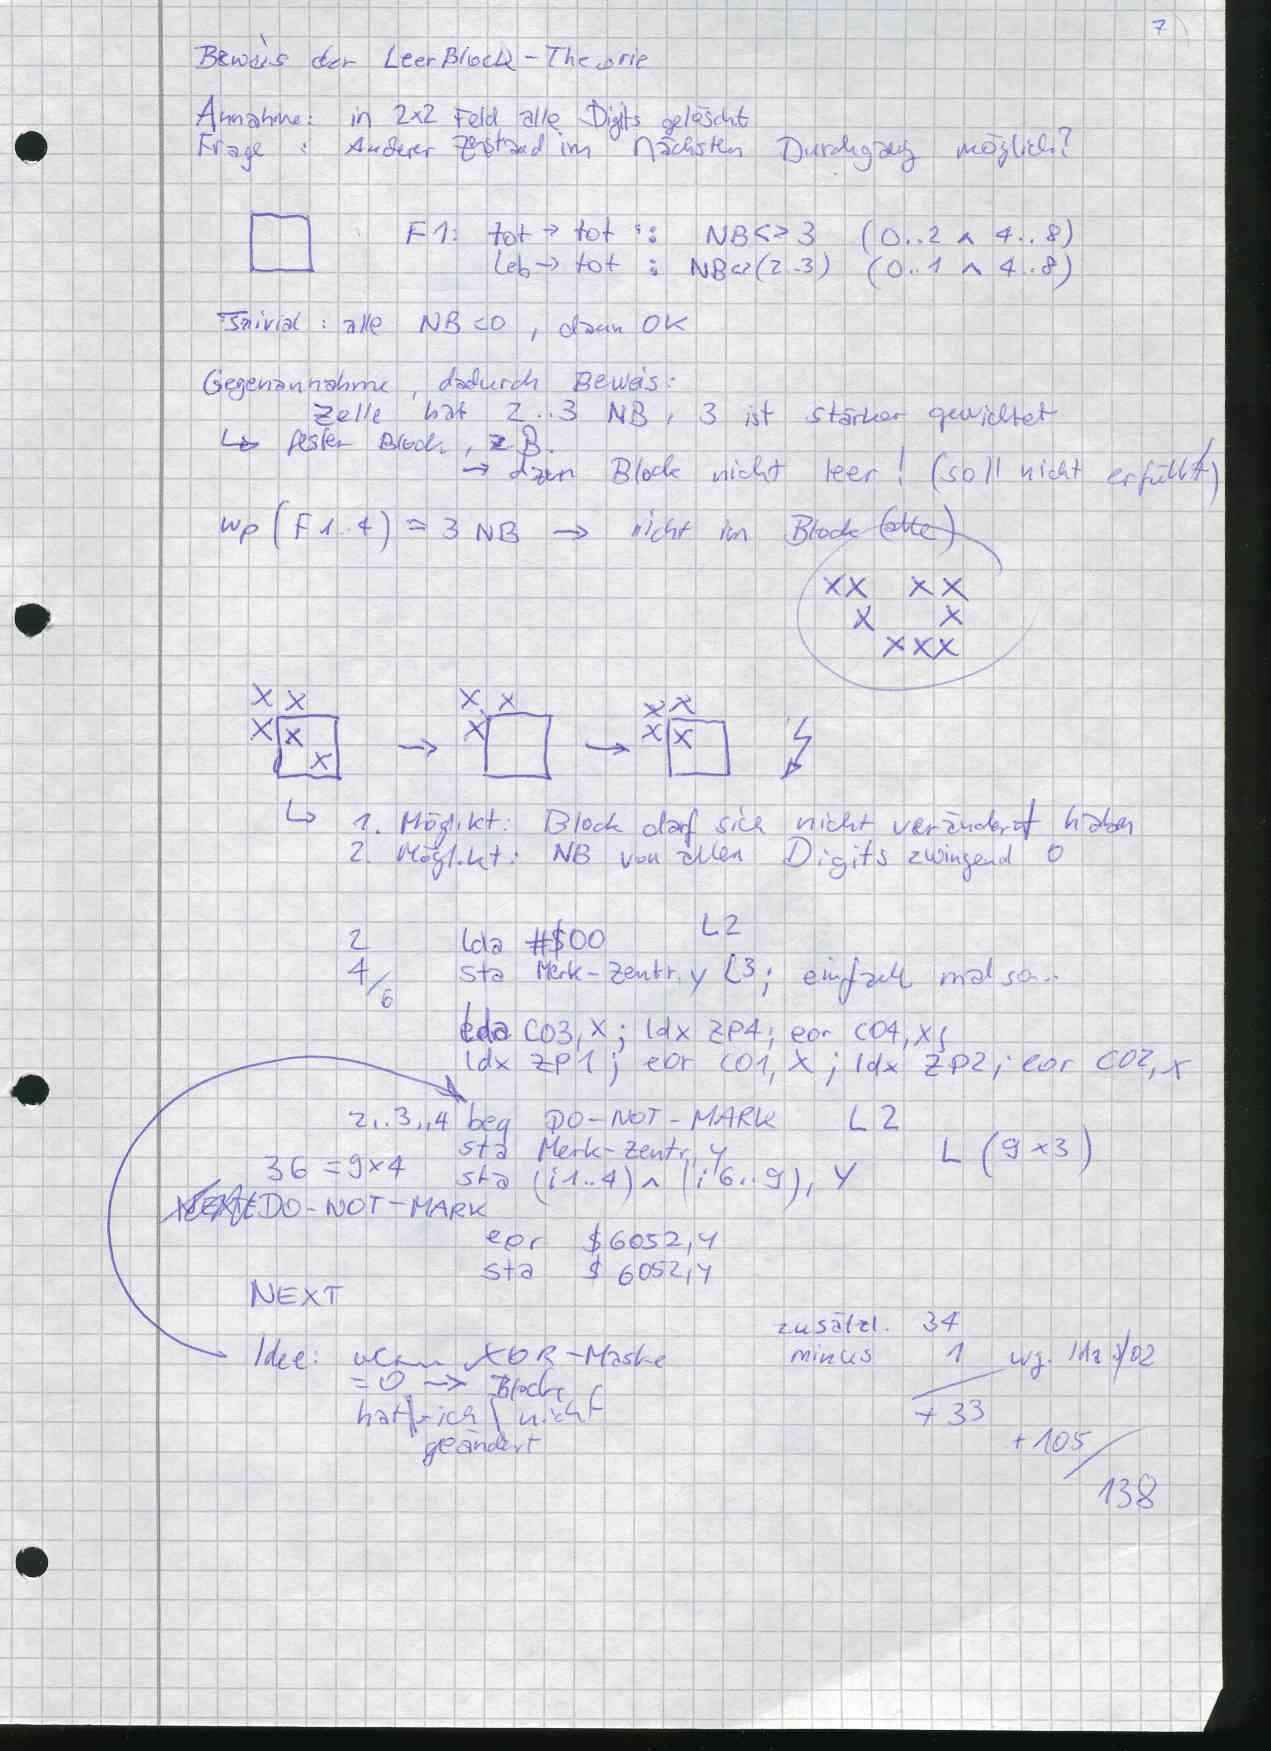 7
Beweis der LeerBlock-Theorie
Annahme: in 2x2 Feld alle Digits gelöscht
Frage : Anderer Zustand im nächsten Durchgang möglich?
F1: tot → tot : NB<>3 (0..2 ∧ 4..8)
Leb → tot : NB<>(2..3) (0..1 ∧ 4..8)
Trivial: alle NB=0, dann OK
Gegenannahme, dadurch Beweis:
Zelle hat 2..3 NB, 3 ist stärker gewichtet
↳ fester Block, z.B.
→ dann Block nicht leer! (soll nicht erfüllt)
wp (F1..4) = 3 NB → nicht im Block (alle)
XX XX
X X
XXX
X X X X X X
X X X X X
X
→ →
↳ 1. Möglkt: Block darf sich nicht verändert haben
2. Möglkt: NB von allen Digits zwingend 0
2 lda #$00 L2
4/6 sta Merk-Zentr.y L3; einfach mal so..
lda C03,X; ldx ZP4; eor C04,X;
ldx ZP1; eor C01,X; ldx ZP2; eor C02,X
2..3..4 beq DO-NOT-MARK L2
sta Merk-Zentr,y L (9x3)
36 = 9x4 sta (i1..4) ∧ (i6..9),Y
DO-NOT-MARK
eor $6052,Y
sta $6052,Y
NEXT
zusätzl. 34
Idee: wenn XOR-Maske minus 1 wg.
=0 → Block
hat sich nicht +33
geändert +105
138